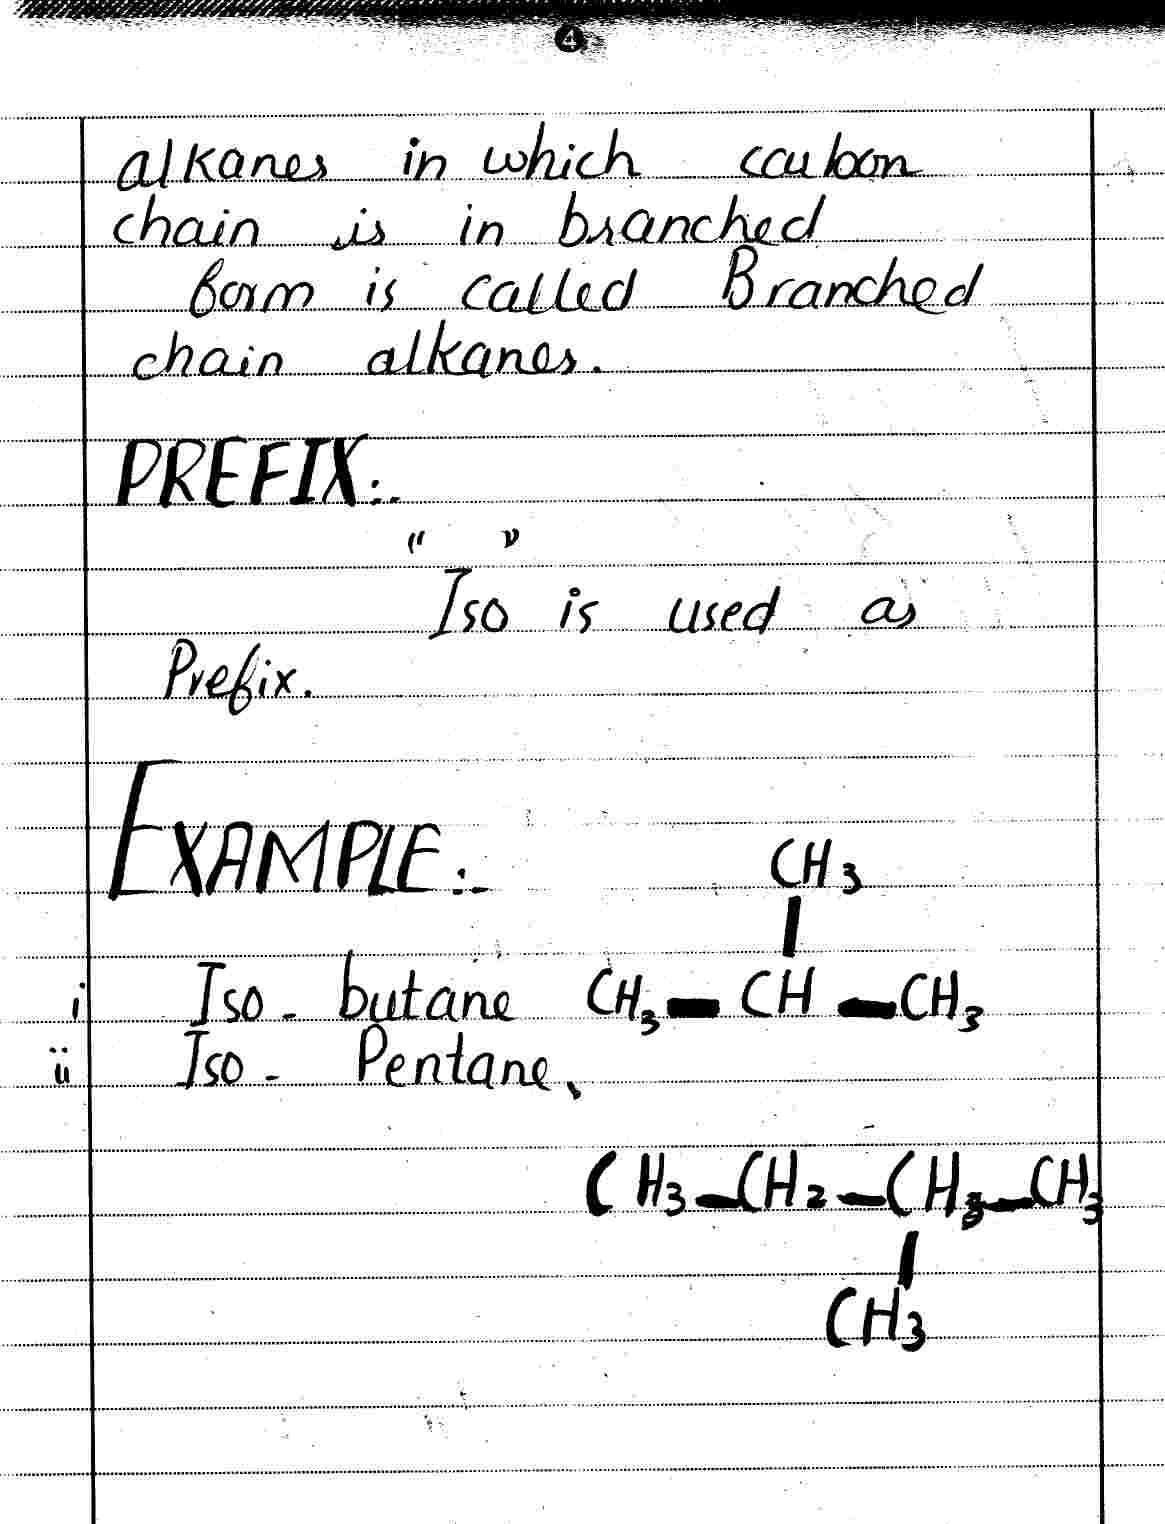 4
alkanes in which carbon
chain is in branched
form is called Branched
chain alkanes.
PREFIX:-
" "
Iso is used as
Prefix.
EXAMPLE:-
CH3
|
i Iso - butane CH3 - CH - CH3
ii Iso - Pentane,
CH3 - CH2 - CH3 - CH3
|
CH3